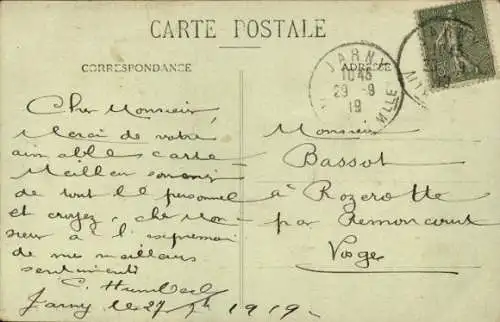 CARTE POSTALE
CORRESPONDANCE
ADRESSE
JARNY
10 45
29 - 9
19
Mlle
Cher Monsieur
Merci de votre
aimable carte
Meilleur souvenir
de tout le personnel
et croyez, cher Mon-
sieur à l'expression
de mes meilleurs
sentiments
C. Humbert
Jarny le 27 7bre 1919.
Monsieur
Bassot
à Rozerotte
par Remoncourt
Vosges